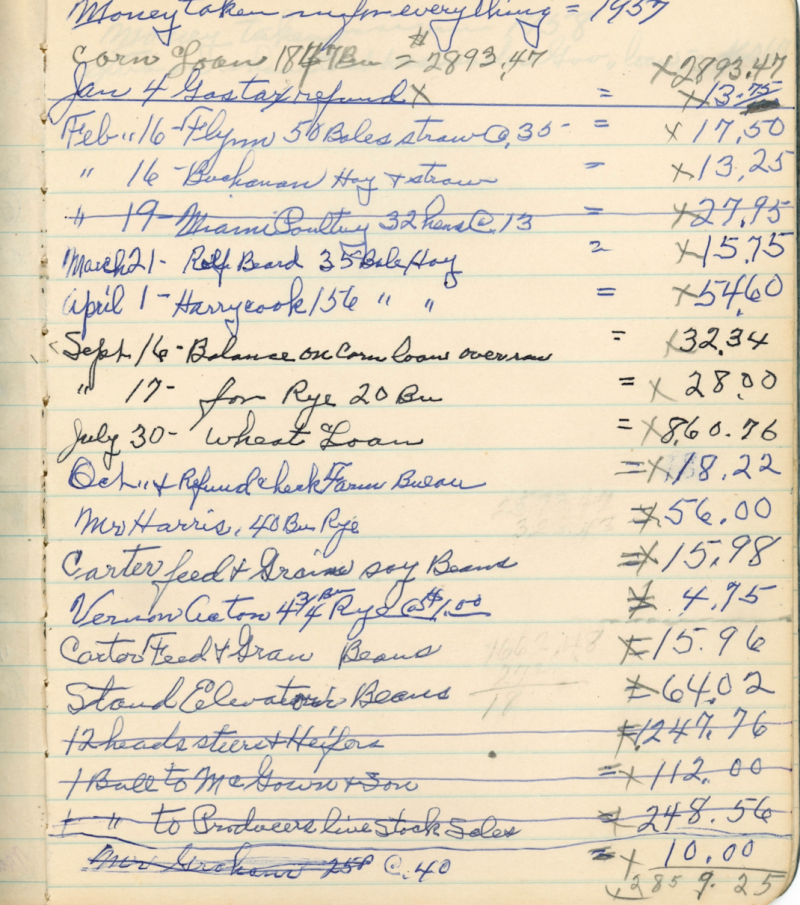 Money taken in for everything = 1957
Corn Loan 1847 Bu = $2893.47 x 2893.47
Jan 4 Gas tax refund x = x 13.75
Feb " 16 - Flynn 50 Bales straw @ .35 - = x 17.50
" 16 - Buchanan Hay & straw = x 13.25
" 19 - Miami Poultry 32 hens @ .13 = x 27.95
March 21 - Rolf Beard 35 Bale Hay = x 15.75
April 1 - Harry cook 156 " " = x 54.60
Sept 16 - Balance on Corn loan over run = x 32.34
" 17 - for Rye 20 Bu = x 28.00
July 30 - Wheat Loan = x 860.76
Oct " 4 Refund check Farm Bureau = x 18.22
Mr Harris, 40 Bu Rye = x 56.00
Carter feed & Grain soy Beans = x 15.98
Vernon Acton 4 3/4 Bu Rye @ $1.00 = x 4.75
Carter Feed & Gran Beans = x 15.96
Stand Elevator Beans = x 64.02
12 heads steers & Heifers = x 1247.76
1 Bull to McGown & Son = x 112.00
1 " to Producers live stock Sales = x 248.56
Mr @ .40 = x 10.00
x 2859.25